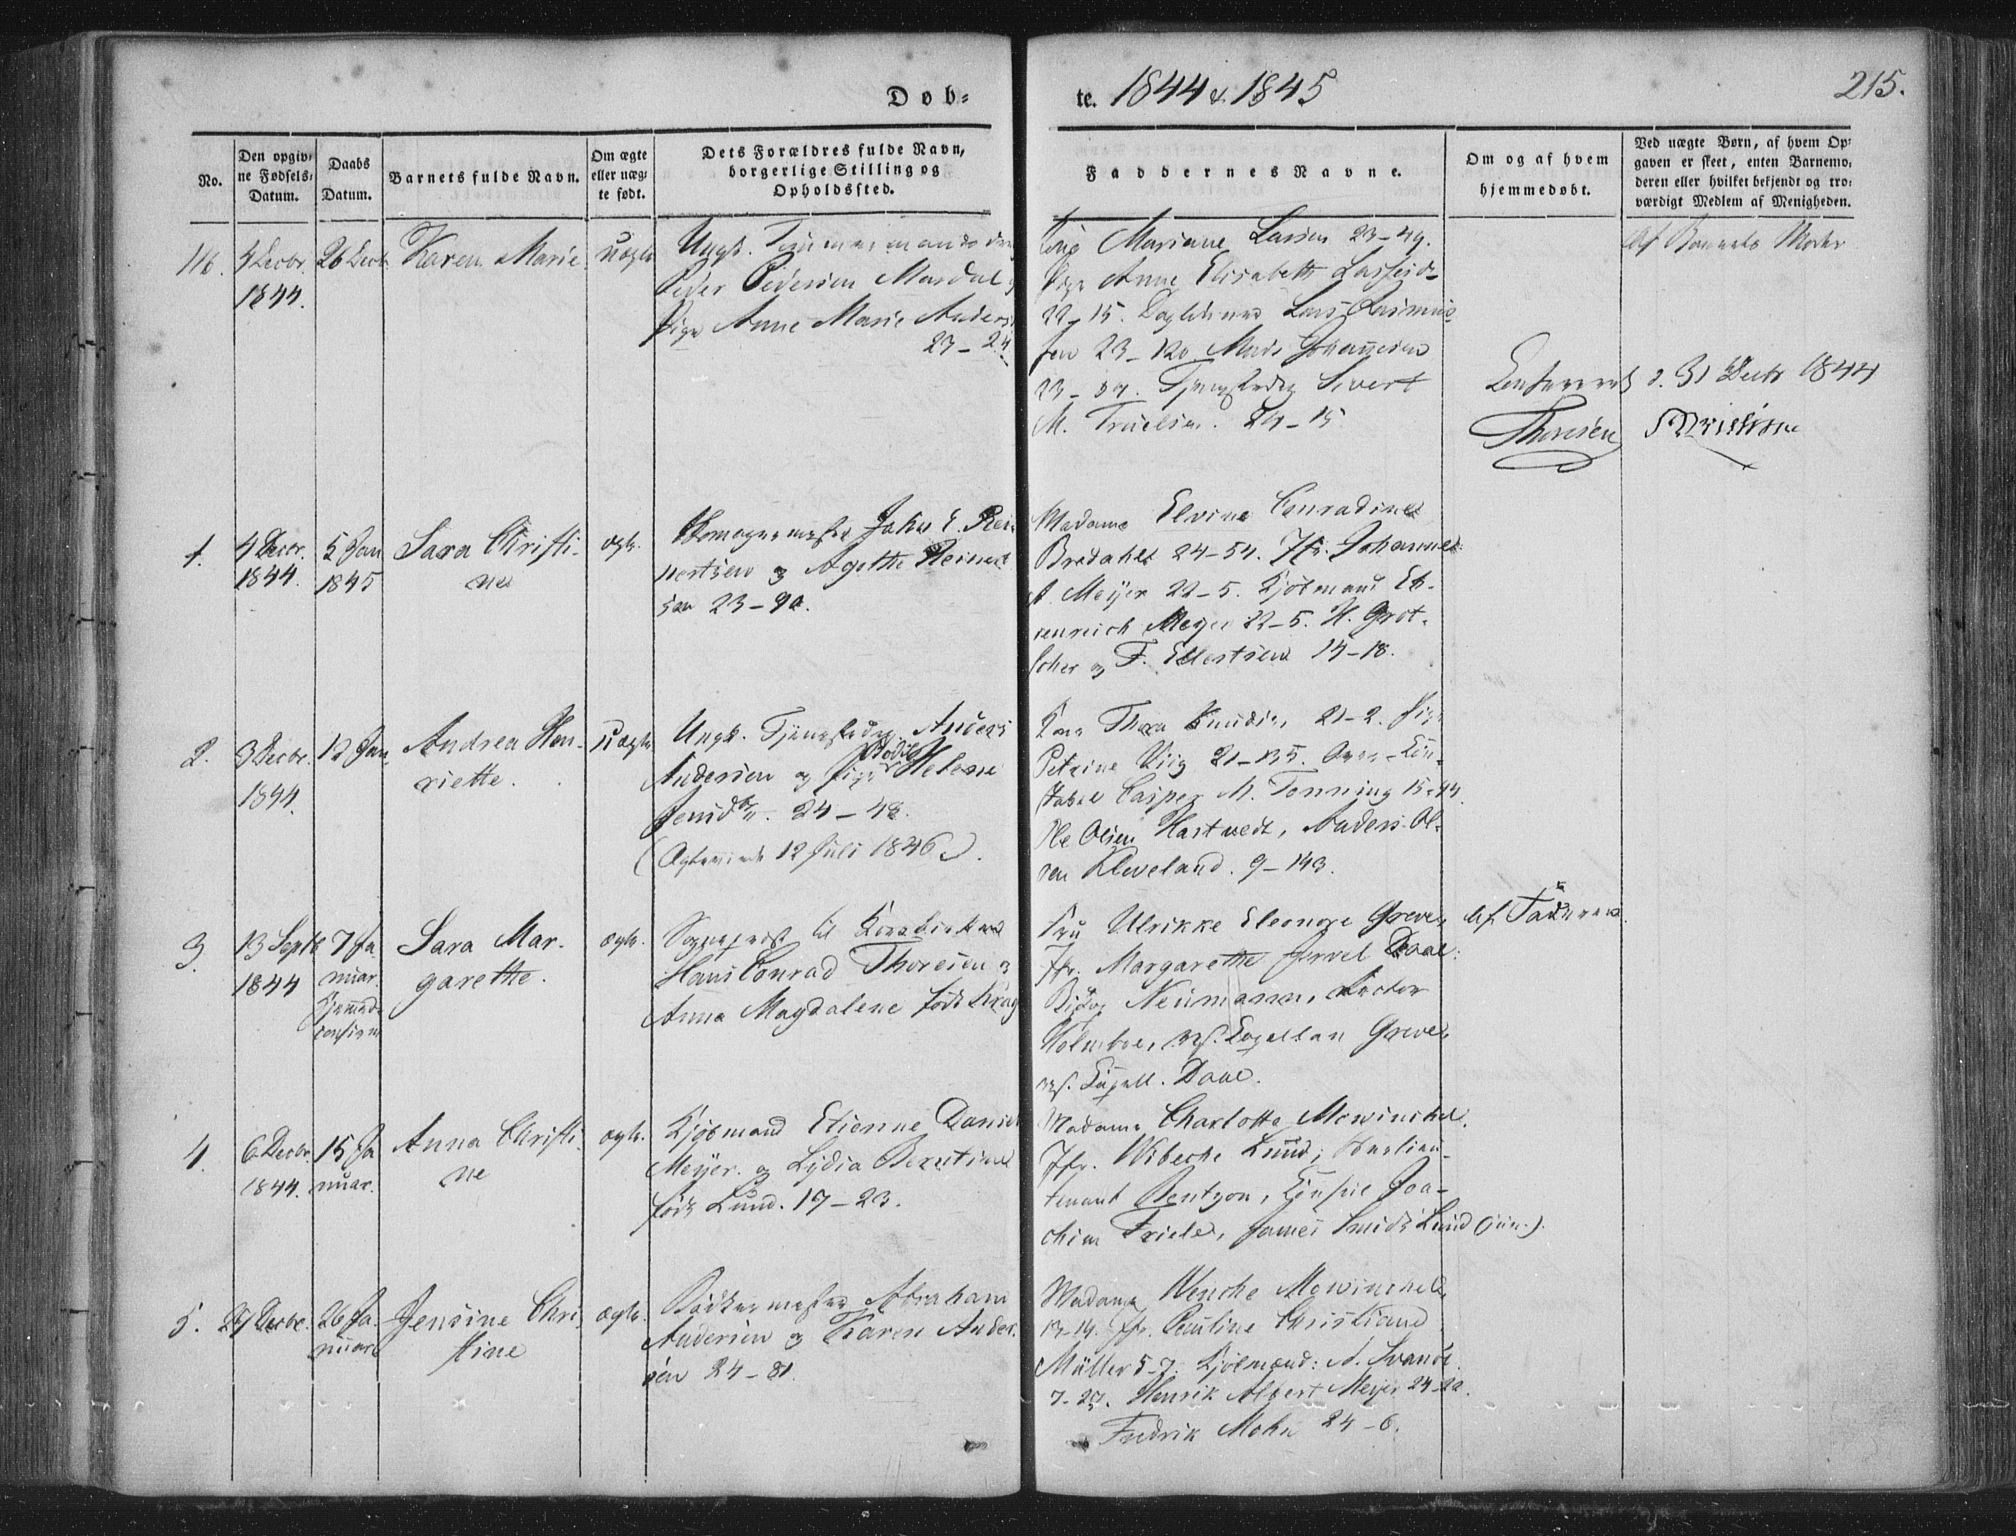 Døb-
te. 1844 & 1845
215.
No.
Den opgiv-
ne Fødsels-
Datum.
Daabs
Datum.
Barnets fulde Navn.
Om ægte
eller uæg-
te født.
Dets Forældres fulde Navn,
borgerlige Stilling og
Opholdssted.
Faddernes Navne.
Om og af hvem
hjemmedøbt.
Ved uægte Børn, af hvem Op-
gaven er skeet, enten Barnemo-
deren eller hvilket bekjendt og tro-
værdigt Medlem af Menigheden.
116.
4 Decbr.
1844.
26 Decb.
Karen Marie
uægte
Ungk. Tømmermandsdr.
Peder Pedersen Mardal
Pige Anne Marie Anders
23-24
Mariane Larsen 23-49.
Pige Anne Elisabeth
22-15. Lars Rasmus-
sen 23- Mads Johannesen
23- Sivert
M. Truelsen. 24-15
Af Barnets Moder
Conferert d. 31 Decbr 1844
Thoresen
1.
4 Decbr.
1844.
5 Jan
1845
Sara Christi-
ne
ægte.
John E. Rei-
nertsen og Agethe Reinert
sen 23-90.
Madame Elvine Conradine
Bredahl 24-54. Jfr. Johanne
A. Meyer 22-5. Kjøbmand Eh-
renreich Meyer 22-5. H. Grot-
scher og F. Ellertsen 14-18.
2.
3 Decbr.
1844.
12 Jan
Andrea Hen-
riette.
uægte
Ungk. Anders
Bodil
Andersen og Pige Helene
24-48.
(Ægteviede 12 Juli 1846.)
Kone Thora Knudsen, 21-2. Pige
Petrine Viig 21-135. Over-Con-
stabel Casper M. Tonning 15-44.
Ole Olsen Hartvedt, Anders Ol-
sen Kleveland. 9-143.
3.
13 Septb
1844
7 Ja
nuar.
Sara Mar-
garethe.
ægte.
Sognepræst til Korskirken
Hans Conrad Thoresen og
Anna Magdalene født Krag
Fru Ulrikke Eleonore Greve,
Jfr. Margarethe Daae.
Bisp Neumann, Rector
Holmboe, res. Capellan Greve,
res. Capell. Daae.
Af Faderen.
4.
6 Decbr.
1844.
15 Ja
nuar.
Anna Christi-
ne
ægte.
Kjøbmand Etienne Daniel
Meyer og Lydia Berntine
født Lund. 17-23.
Madame Charlotte Mowinckel,
Jfr. Wibecke Lund, Premlieu-
tenant Bentzon, Joa-
chim Friele, James Smidt Lund (jun.).
5.
29 Decbr.
26 Ja-
nuar
Jensine Chri-
stine
ægte.
Bødkermester Abraham
Andersen og Karen Ander-
sen 24-81.
Madame Wenche Mowinckel,
13-14. Jfr. Pauline Christiane
Müller 5-7. Kjøbmænd: A. Svanøe
7-27. Henrik Albert Meyer 24-20.
Fredrik Mohn 24-6.